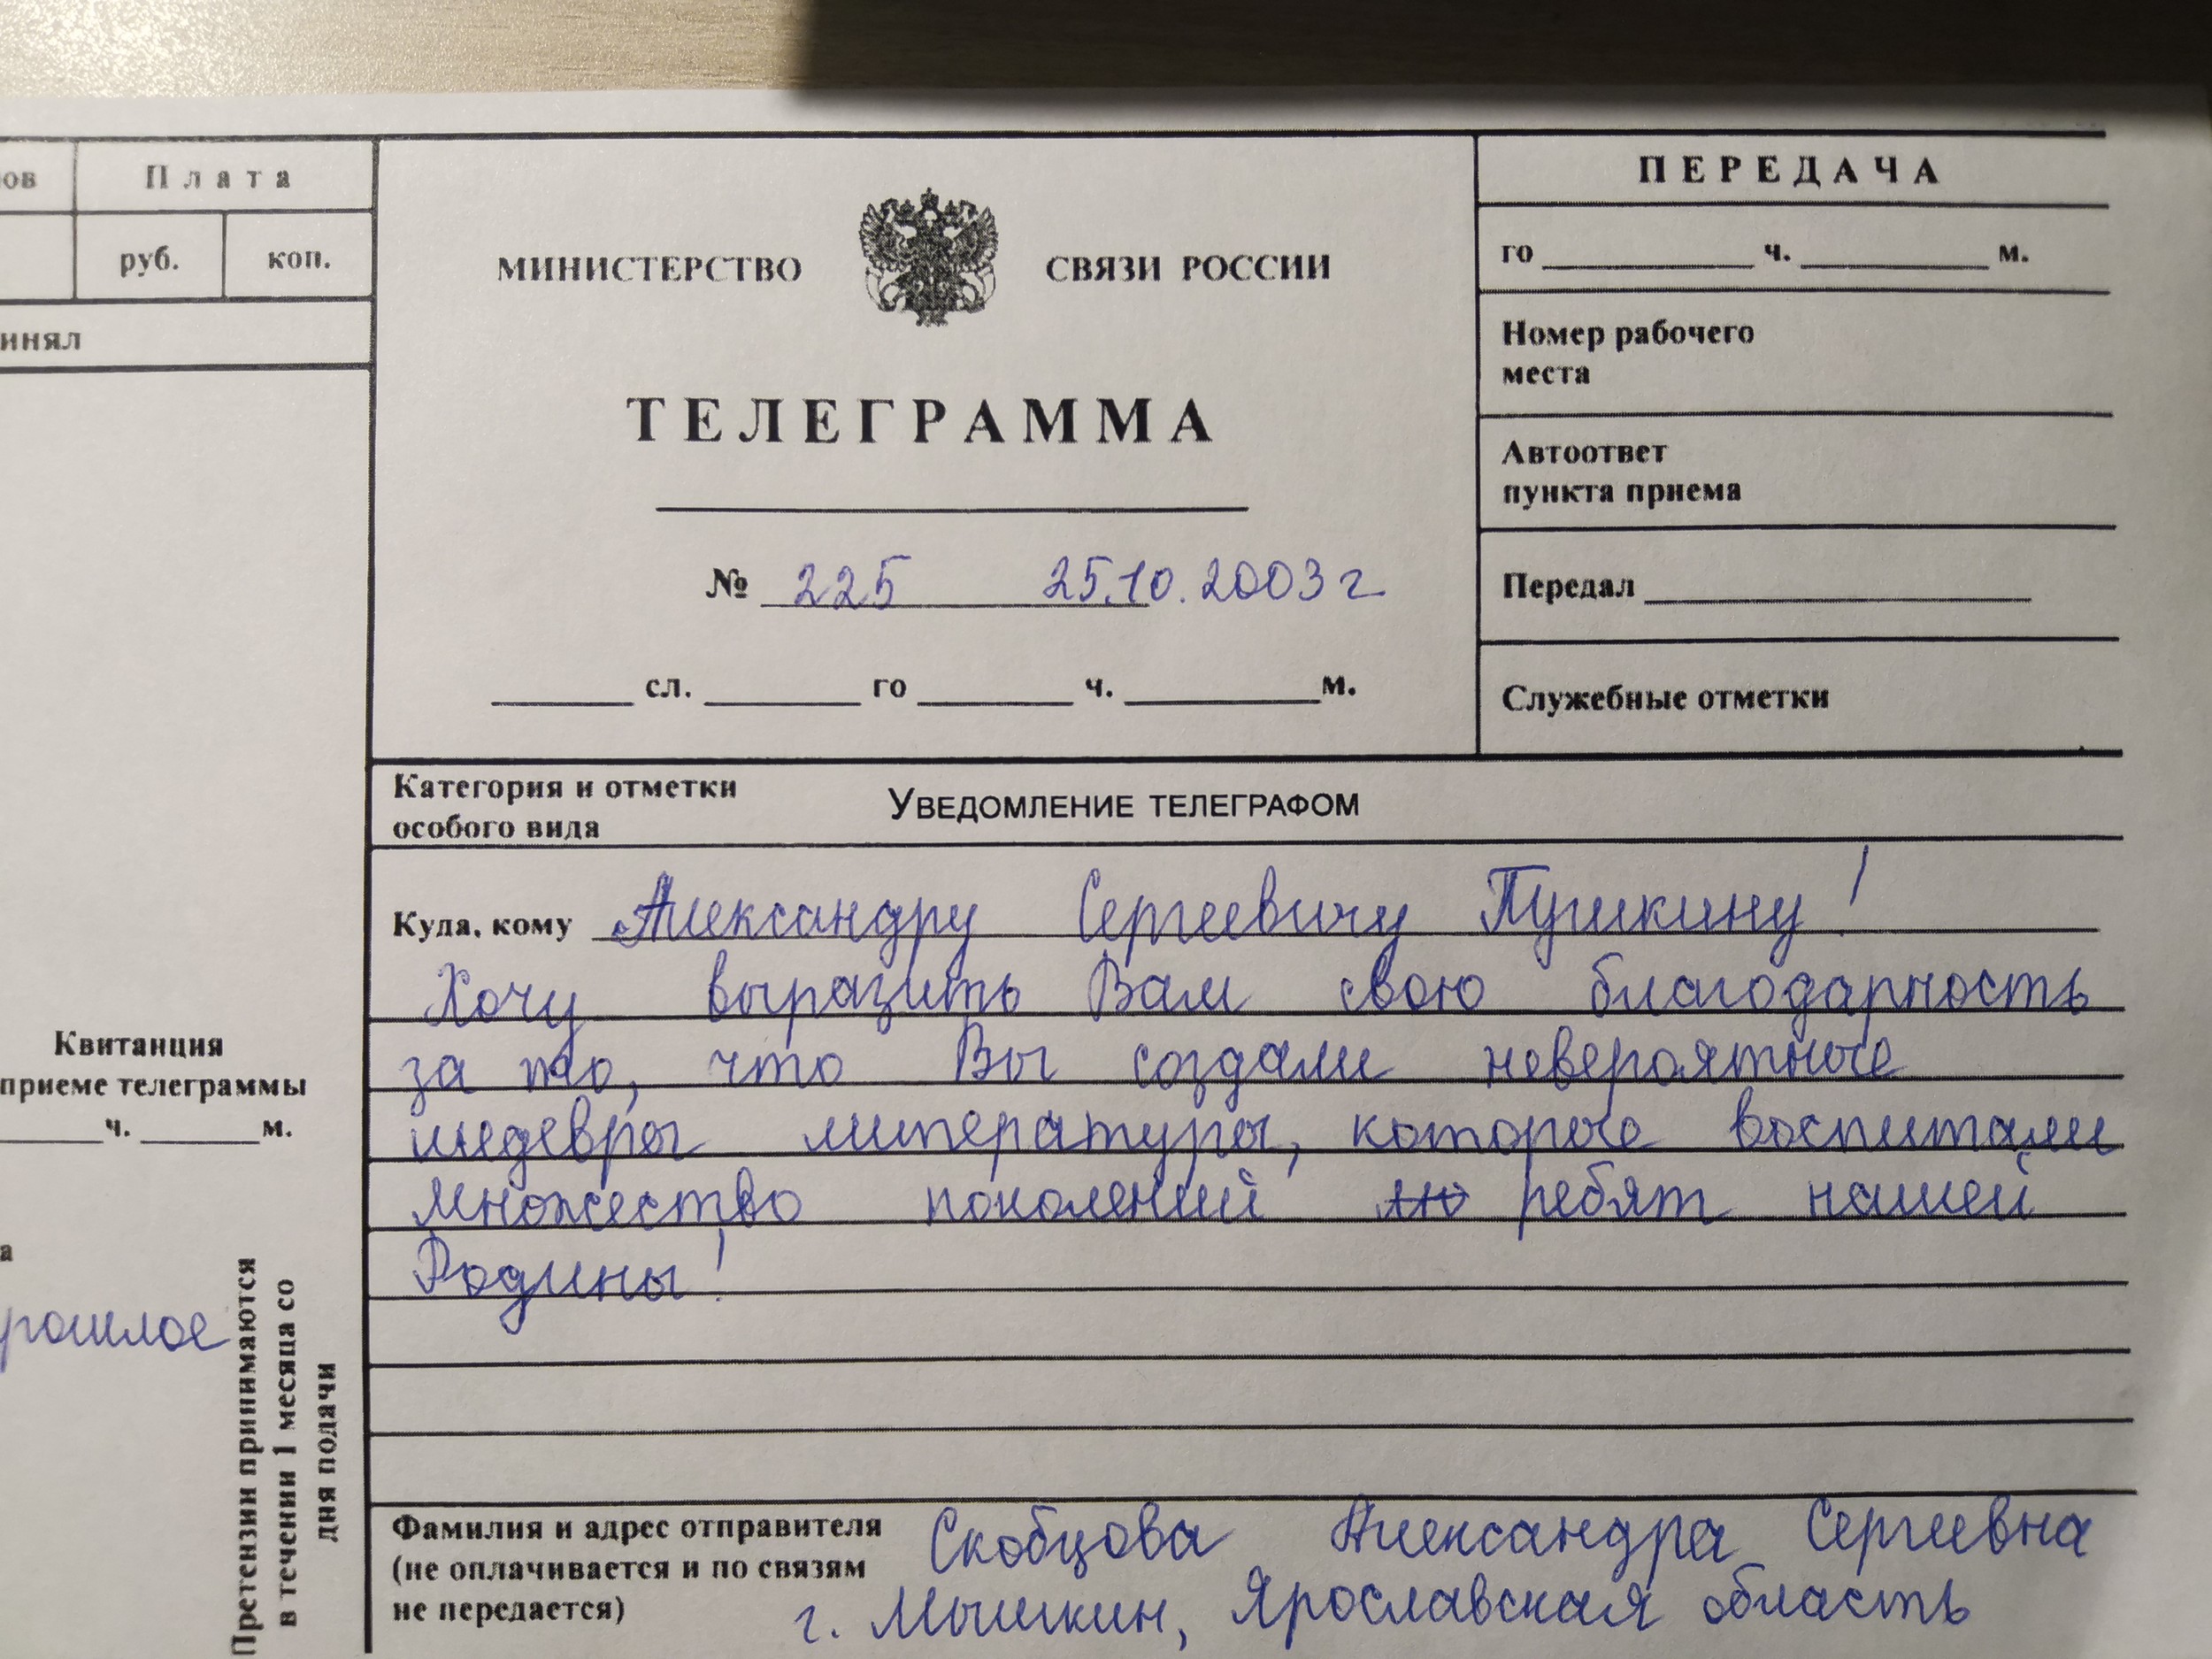 ов Плата
руб. коп.
инял
Квитанция
приеме телеграммы
ч. м.
а
рошлое
Претензии принимаются
в течении 1 месяца со
дня подачи
МИНИСТЕРСТВО СВЯЗИ РОССИИ
ТЕЛЕГРАММА
№ 225 25.10.2003 г
сл. го ч. м.
ПЕРЕДАЧА
го ч. м.
Номер рабочего
места
Автоответ
пункта приема
Передал
Служебные отметки
Категория и отметки
особого вида
УВЕДОМЛЕНИЕ ТЕЛЕГРАФОМ
Куда, кому Александру Сергеевичу Пушкину!
Хочу выразить Вам свою благодарность
за то, что Вы создали невероятные
шедевры литературы, которые воспитали
множество поколений ребят нашей
Родины!
Фамилия и адрес отправителя
(не оплачивается и по связям
не передается)
Скобцова Александра Сергеевна
г. Мышкин, Ярославская область